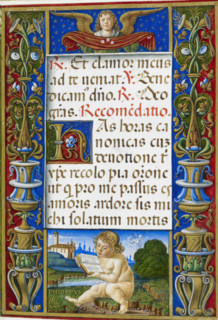 R. Et clamor meus
ad te ueniat. V. Bene
dicam⁹ dño. R. Deo
grās. Recomēdatio.
Has horas ca
nonicas cuʒ
deuotione t̄
xp̄e recolo pia oriōne
ut q pro me passus es
amoris ardore sis mi
chi solatium mortis